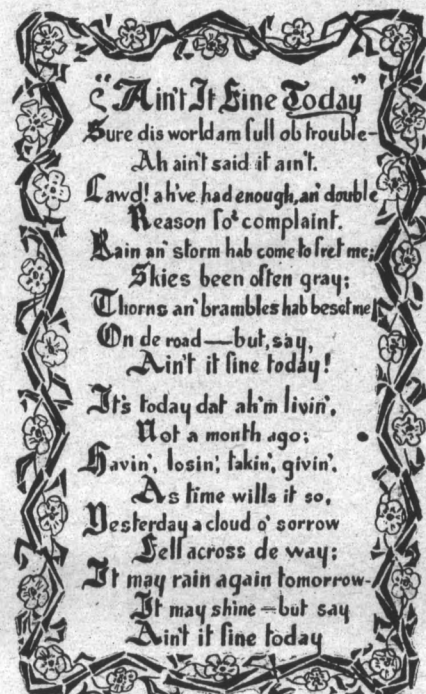 "Ain't It Fine Today"
Sure dis world am full ob trouble-
Ah ain't said it ain't.
Lawd! ah've had enough, an' double
Reason fo' complaint.
Rain an' storm hab come to fret me;
Skies been often gray;
Thorns an' brambles hab beset me
On de road—but, say,
Ain't it fine today!
It's today dat ah'm livin',
Not a month ago;
Havin', losin', takin', givin',
As time wills it so,
Yesterday a cloud o' sorrow
Fell across de way;
It may rain again tomorrow-
It may shine—but say
Ain't it fine today